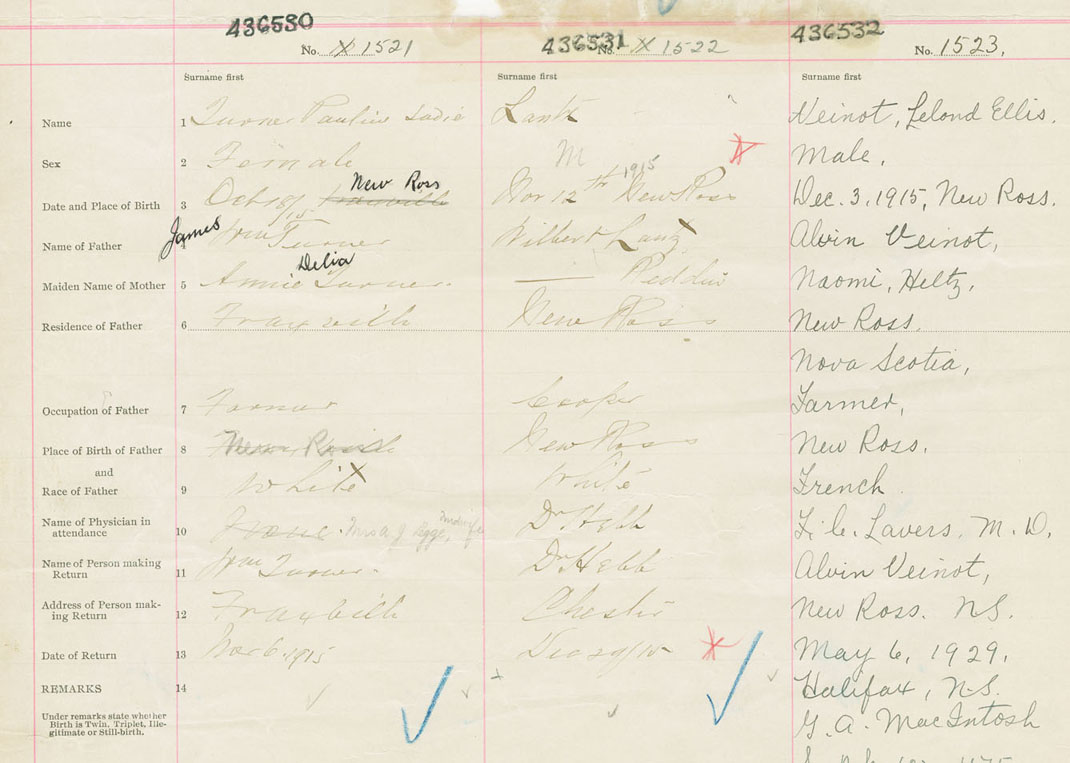 436530 436531 436532
No. X 1521 No. X 1522 No. 1523,
Surname first Surname first Surname first
Name 1 Turner Pauline Sadie Lantz Veinot, Leland Ellis.
Sex 2 Female M Male,
New Ross 1915
Date and Place of Birth 3 Oct 18/15 Nov 12th New Ross Dec. 3, 1915, New Ross.
James
Name of Father 4 Wm Turner Wilbert Lantz Alvin Veinot,
Delia
Maiden Name of Mother 5 Annie Turner. — Reddin Naomi, Heltz,
Residence of Father 6 Fraxville New Ross New Ross.
Nova Scotia,
Occupation of Father 7 Farmer Cooper Farmer,
Place of Birth of Father 8 New Ross New Ross.
and
Race of Father 9 White White French
Name of Physician in
attendance 10 Mrs A J midwife Dr Hebb F. C. Lavers, M. D,
Name of Person making
Return 11 Wm Turner. Dr Hebb Alvin Veinot,
Address of Person mak-
ing Return 12 Fraxville Chester New Ross. N.S.
Date of Return 13 Nov 6. 1915 Dec 29/15 May 6, 1929,
REMARKS 14 Halifax, N.S.
Under remarks state whether
Birth is Twin, Triplet, Ille-
gitimate or Still-birth.
G. A. MacIntosh